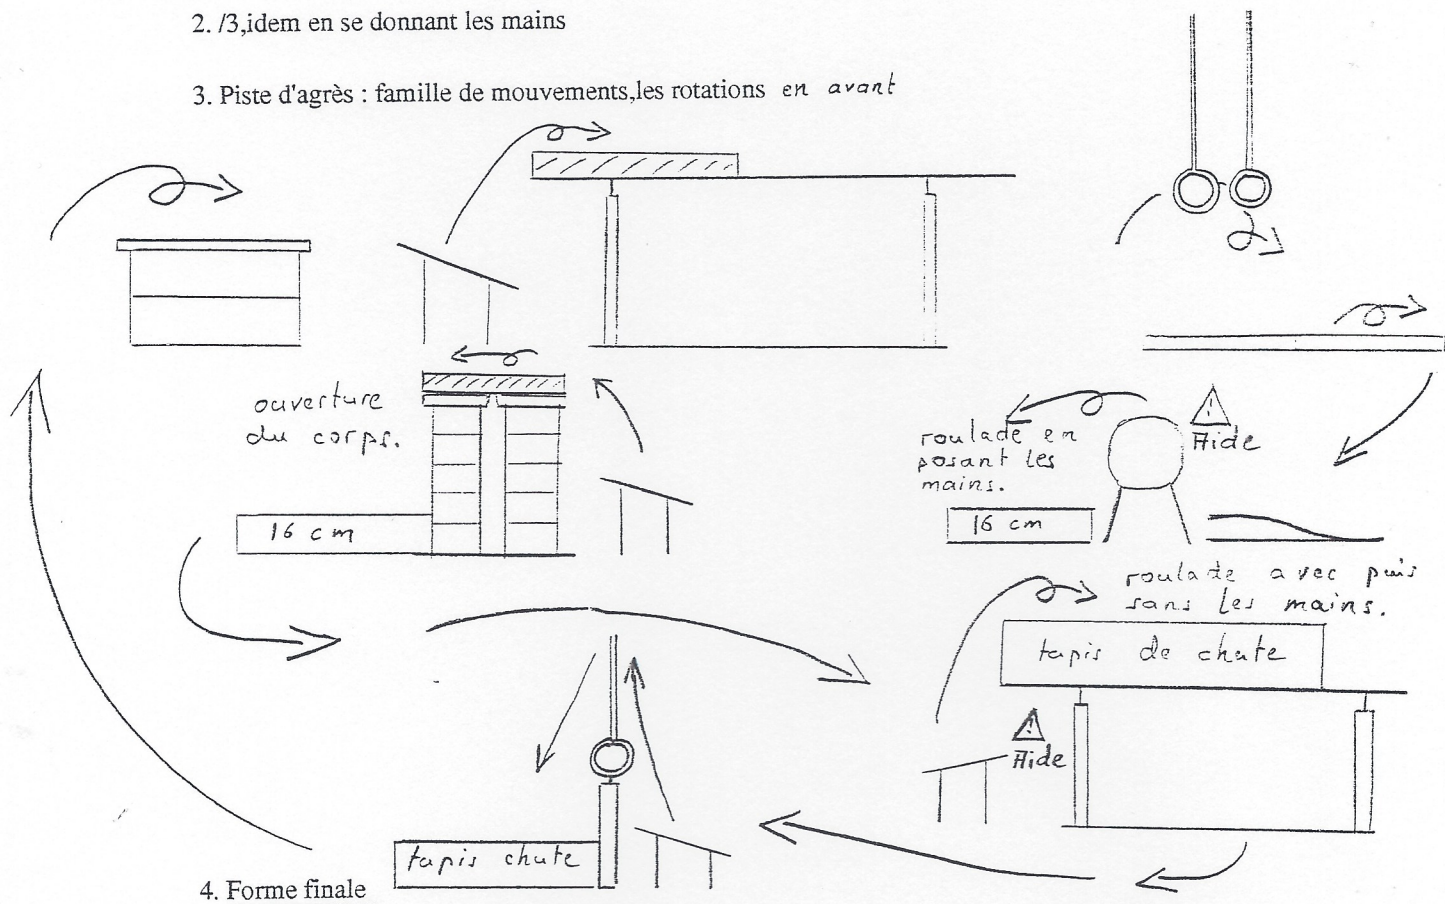 2. /3,idem en se donnant les mains
3. Piste d'agrès : famille de mouvements,les rotations en avant
ouverture
du corps.
16 cm
roulade en
posant les
mains.
Aide
16 cm
roulade avec puis
sans les mains.
tapis de chute
Aide
tapis chute
4. Forme finale